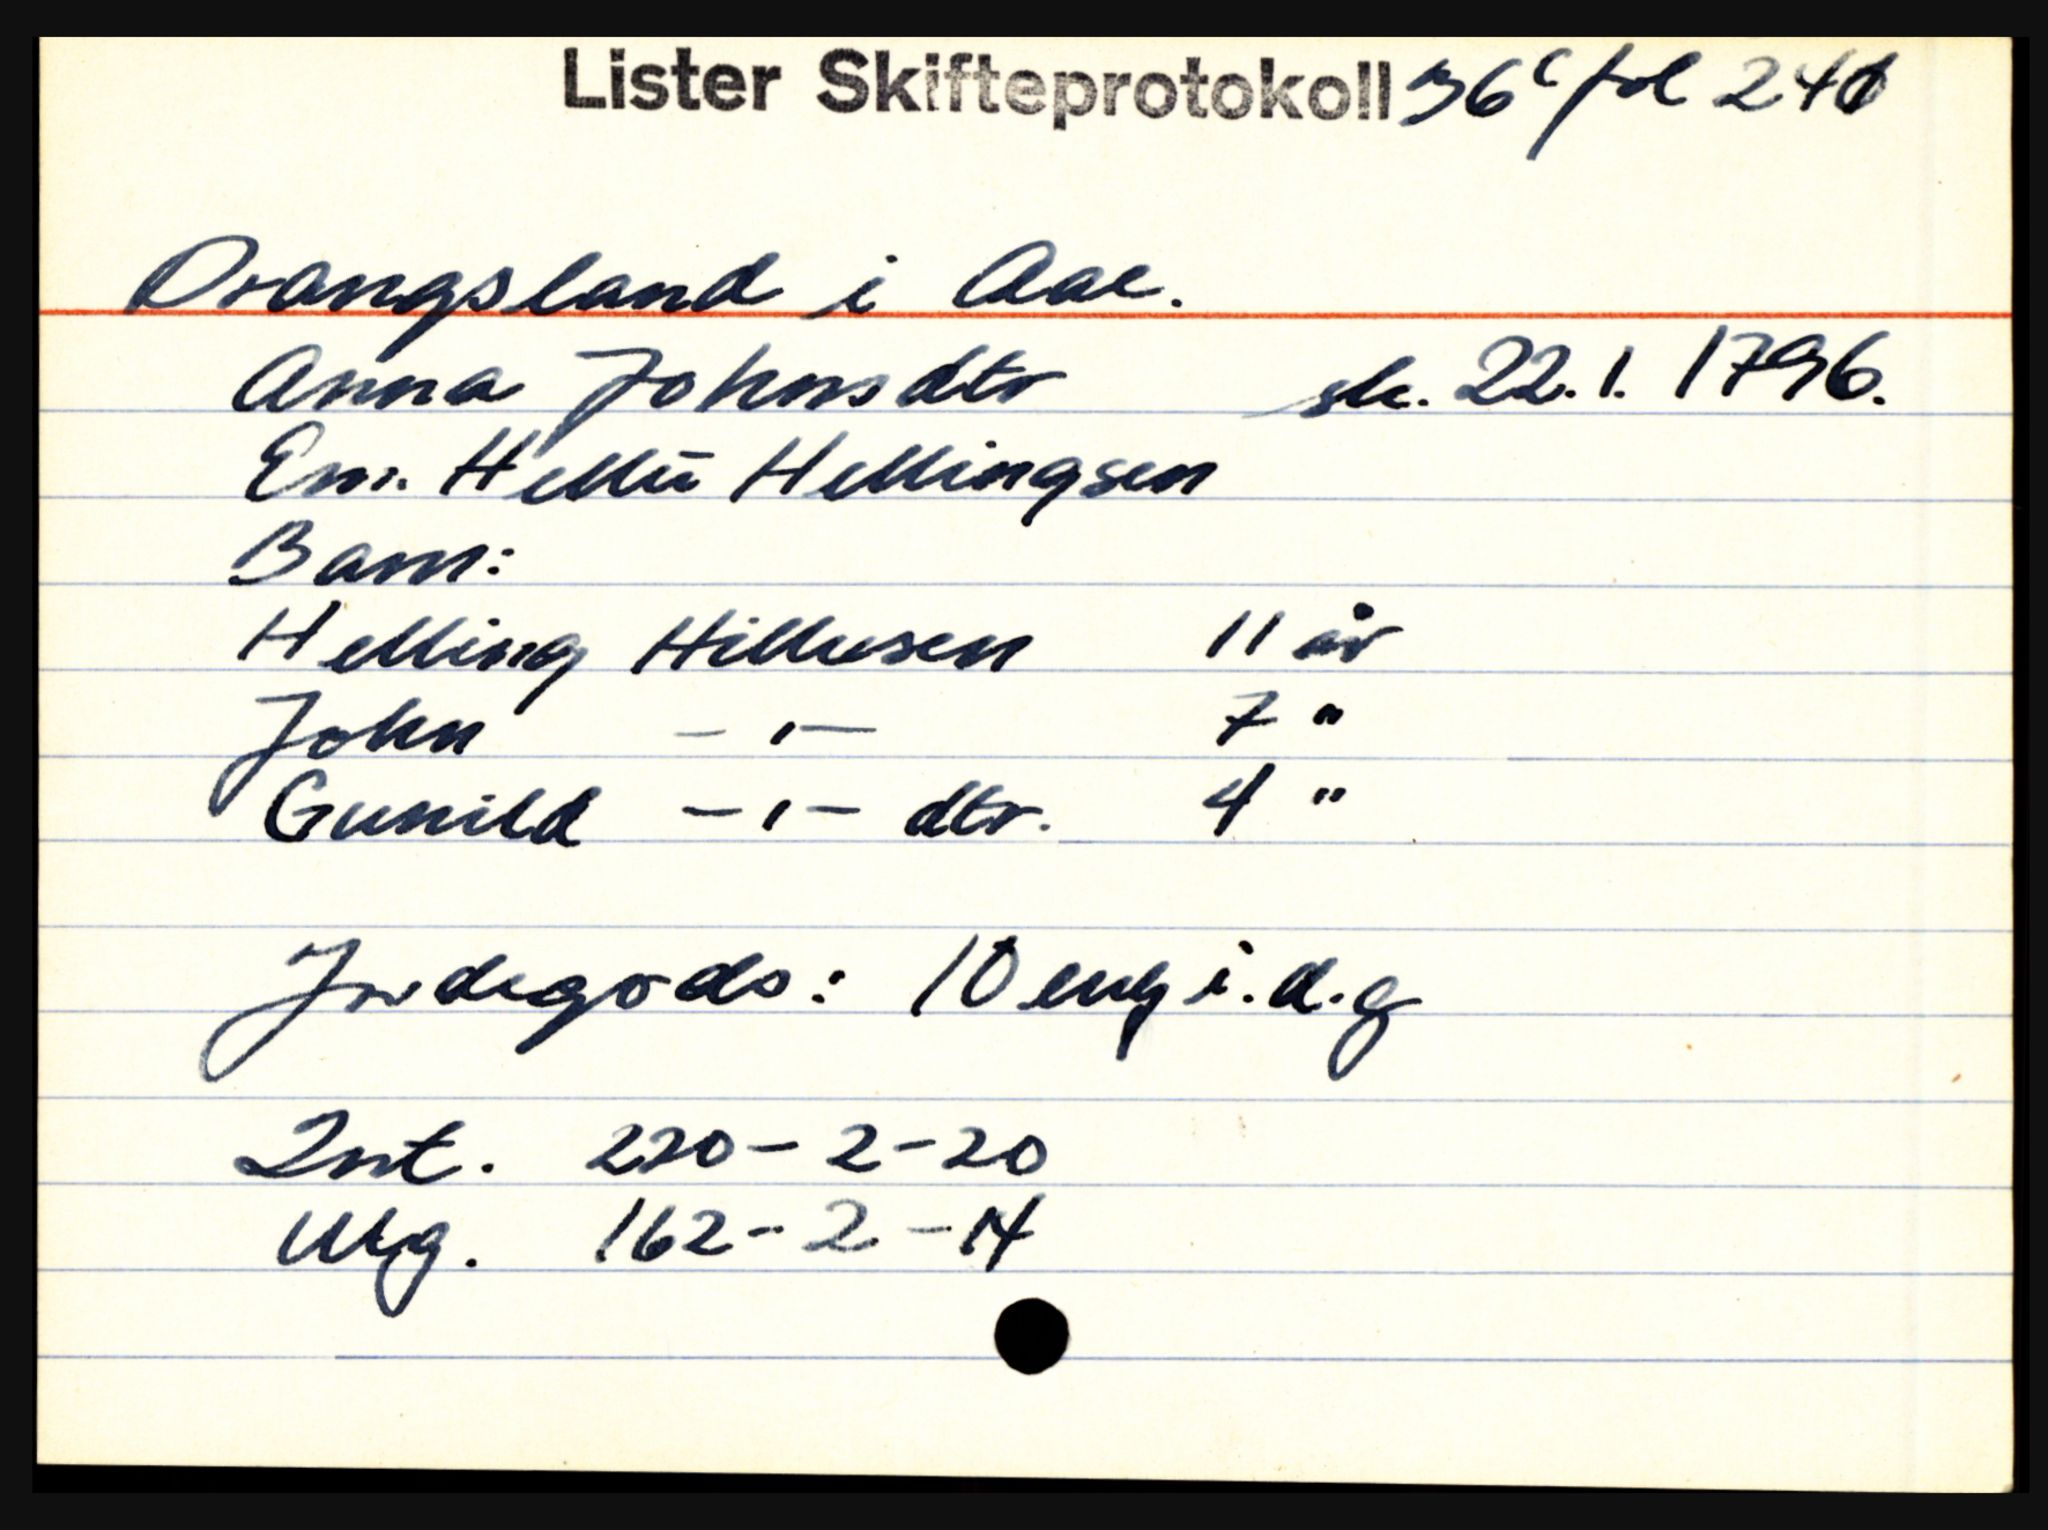 Lister Skifteprotokoll 36c fol 241
Drangsland i Aae.
Anna Johnsdtr sk. 22.1.1796.
Em. Helliu Hellingsen
Barn:
Helling Hilliesen 11 år
John -"- 7 "
Gunild -"- dtr. 4 "
Jordegods: 10 eng i.d.g
Int. 220-2-20
Utg. 162-2-14